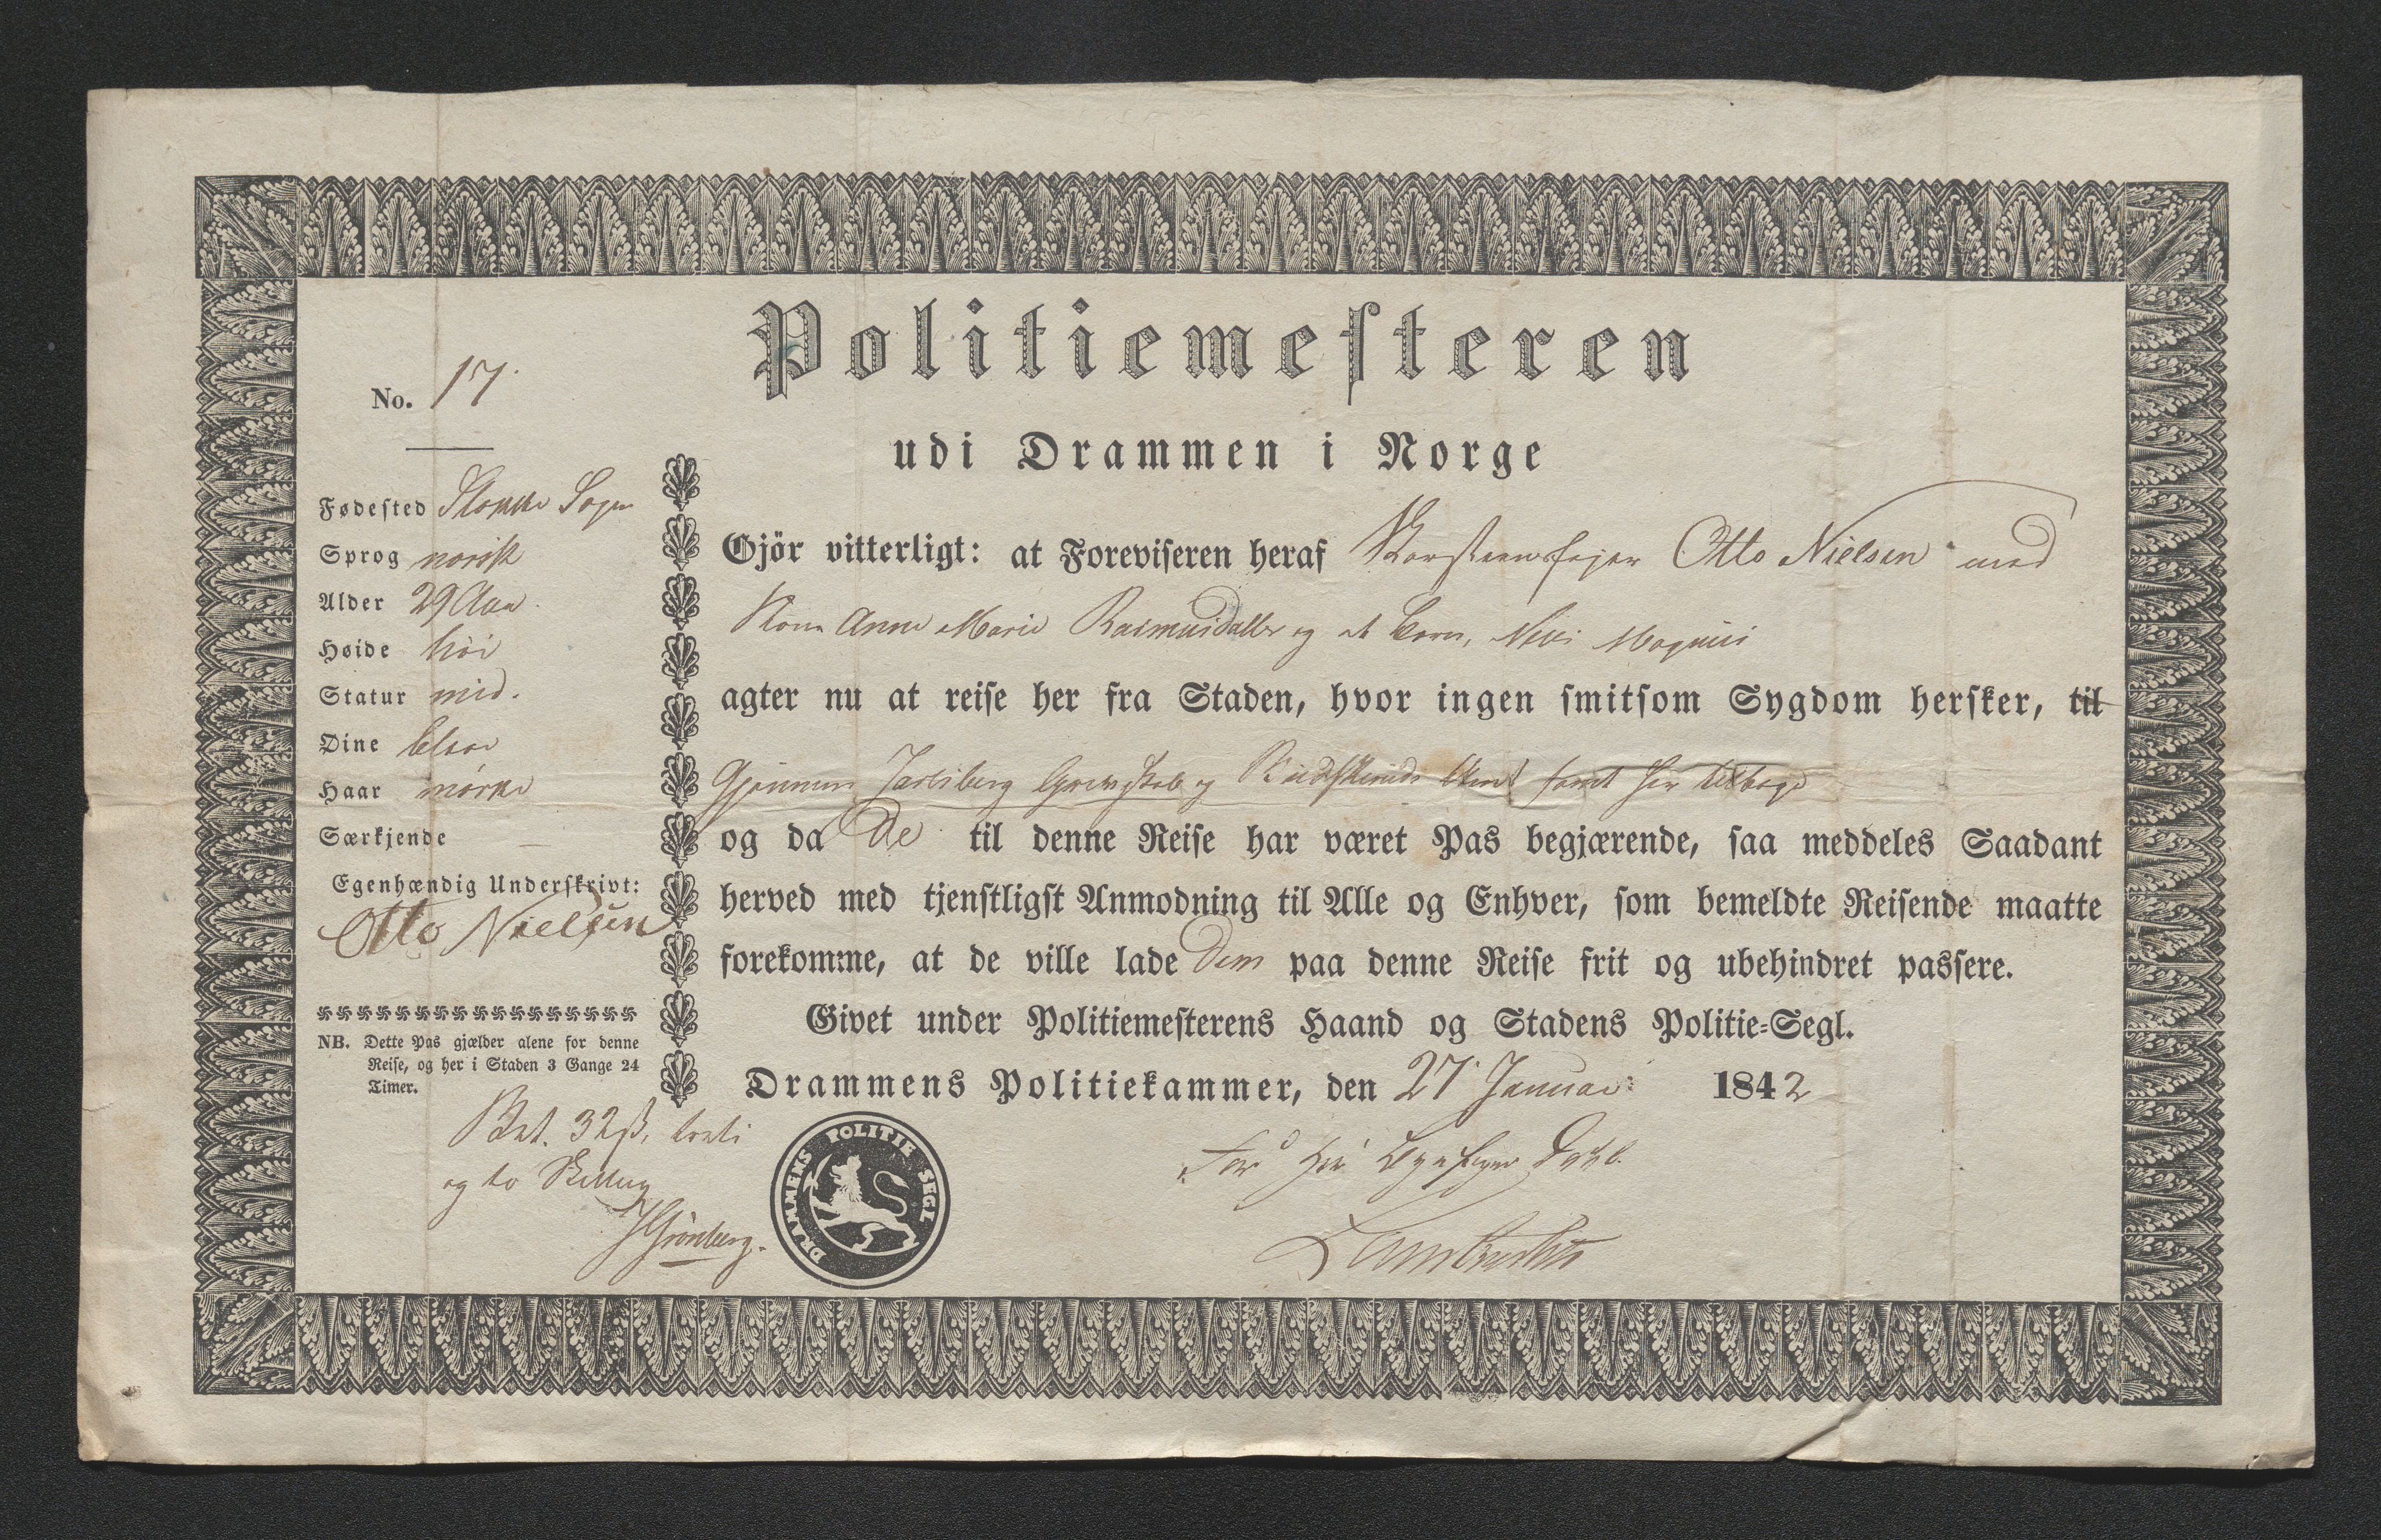 Politiemesteren
udi Drammen i Norge
No. 17.
Fødested Stokke Sogn
Sprog norsk
Alder 29 Aar.
Høide høi
Statur mid.
Øine blaae
Haar mørke
Særkjende —
Egenhændig Underskrivt:
Otto Nielsen
NB. Dette Pas gjælder alene for denne
Reise, og her i Staden 3 Gange 24
Timer.
Bet. 32 ß, treti
og to Skilling
HGrönberg.
Gjör vitterligt: at Foreviseren heraf Skorsteensfejer Otto Nielsen med
Kone Anne Marie Rasmusdatter og et Barn, Nils Magnus
agter nu at reise her fra Staden, hvor ingen smitsom Sygdom hersker, til
Gjennem Jarlsberg Grevskab og Budskeruds Amt samt her tilbage
og da De til denne Reise har været Pas begjærende, saa meddeles Saadant
herved med tjenstligst Anmodning til Alle og Enhver, som bemeldte Reisende maatte
forekomme, at de ville lade Dem paa denne Reise frit og ubehindret passere.
Givet under Politiemesterens Haand og Stadens Politie-Segl.
Drammens Politiekammer, den 27 Januar 1842
DRAMMENS POLITIE SEGL
For Hr Byefoged